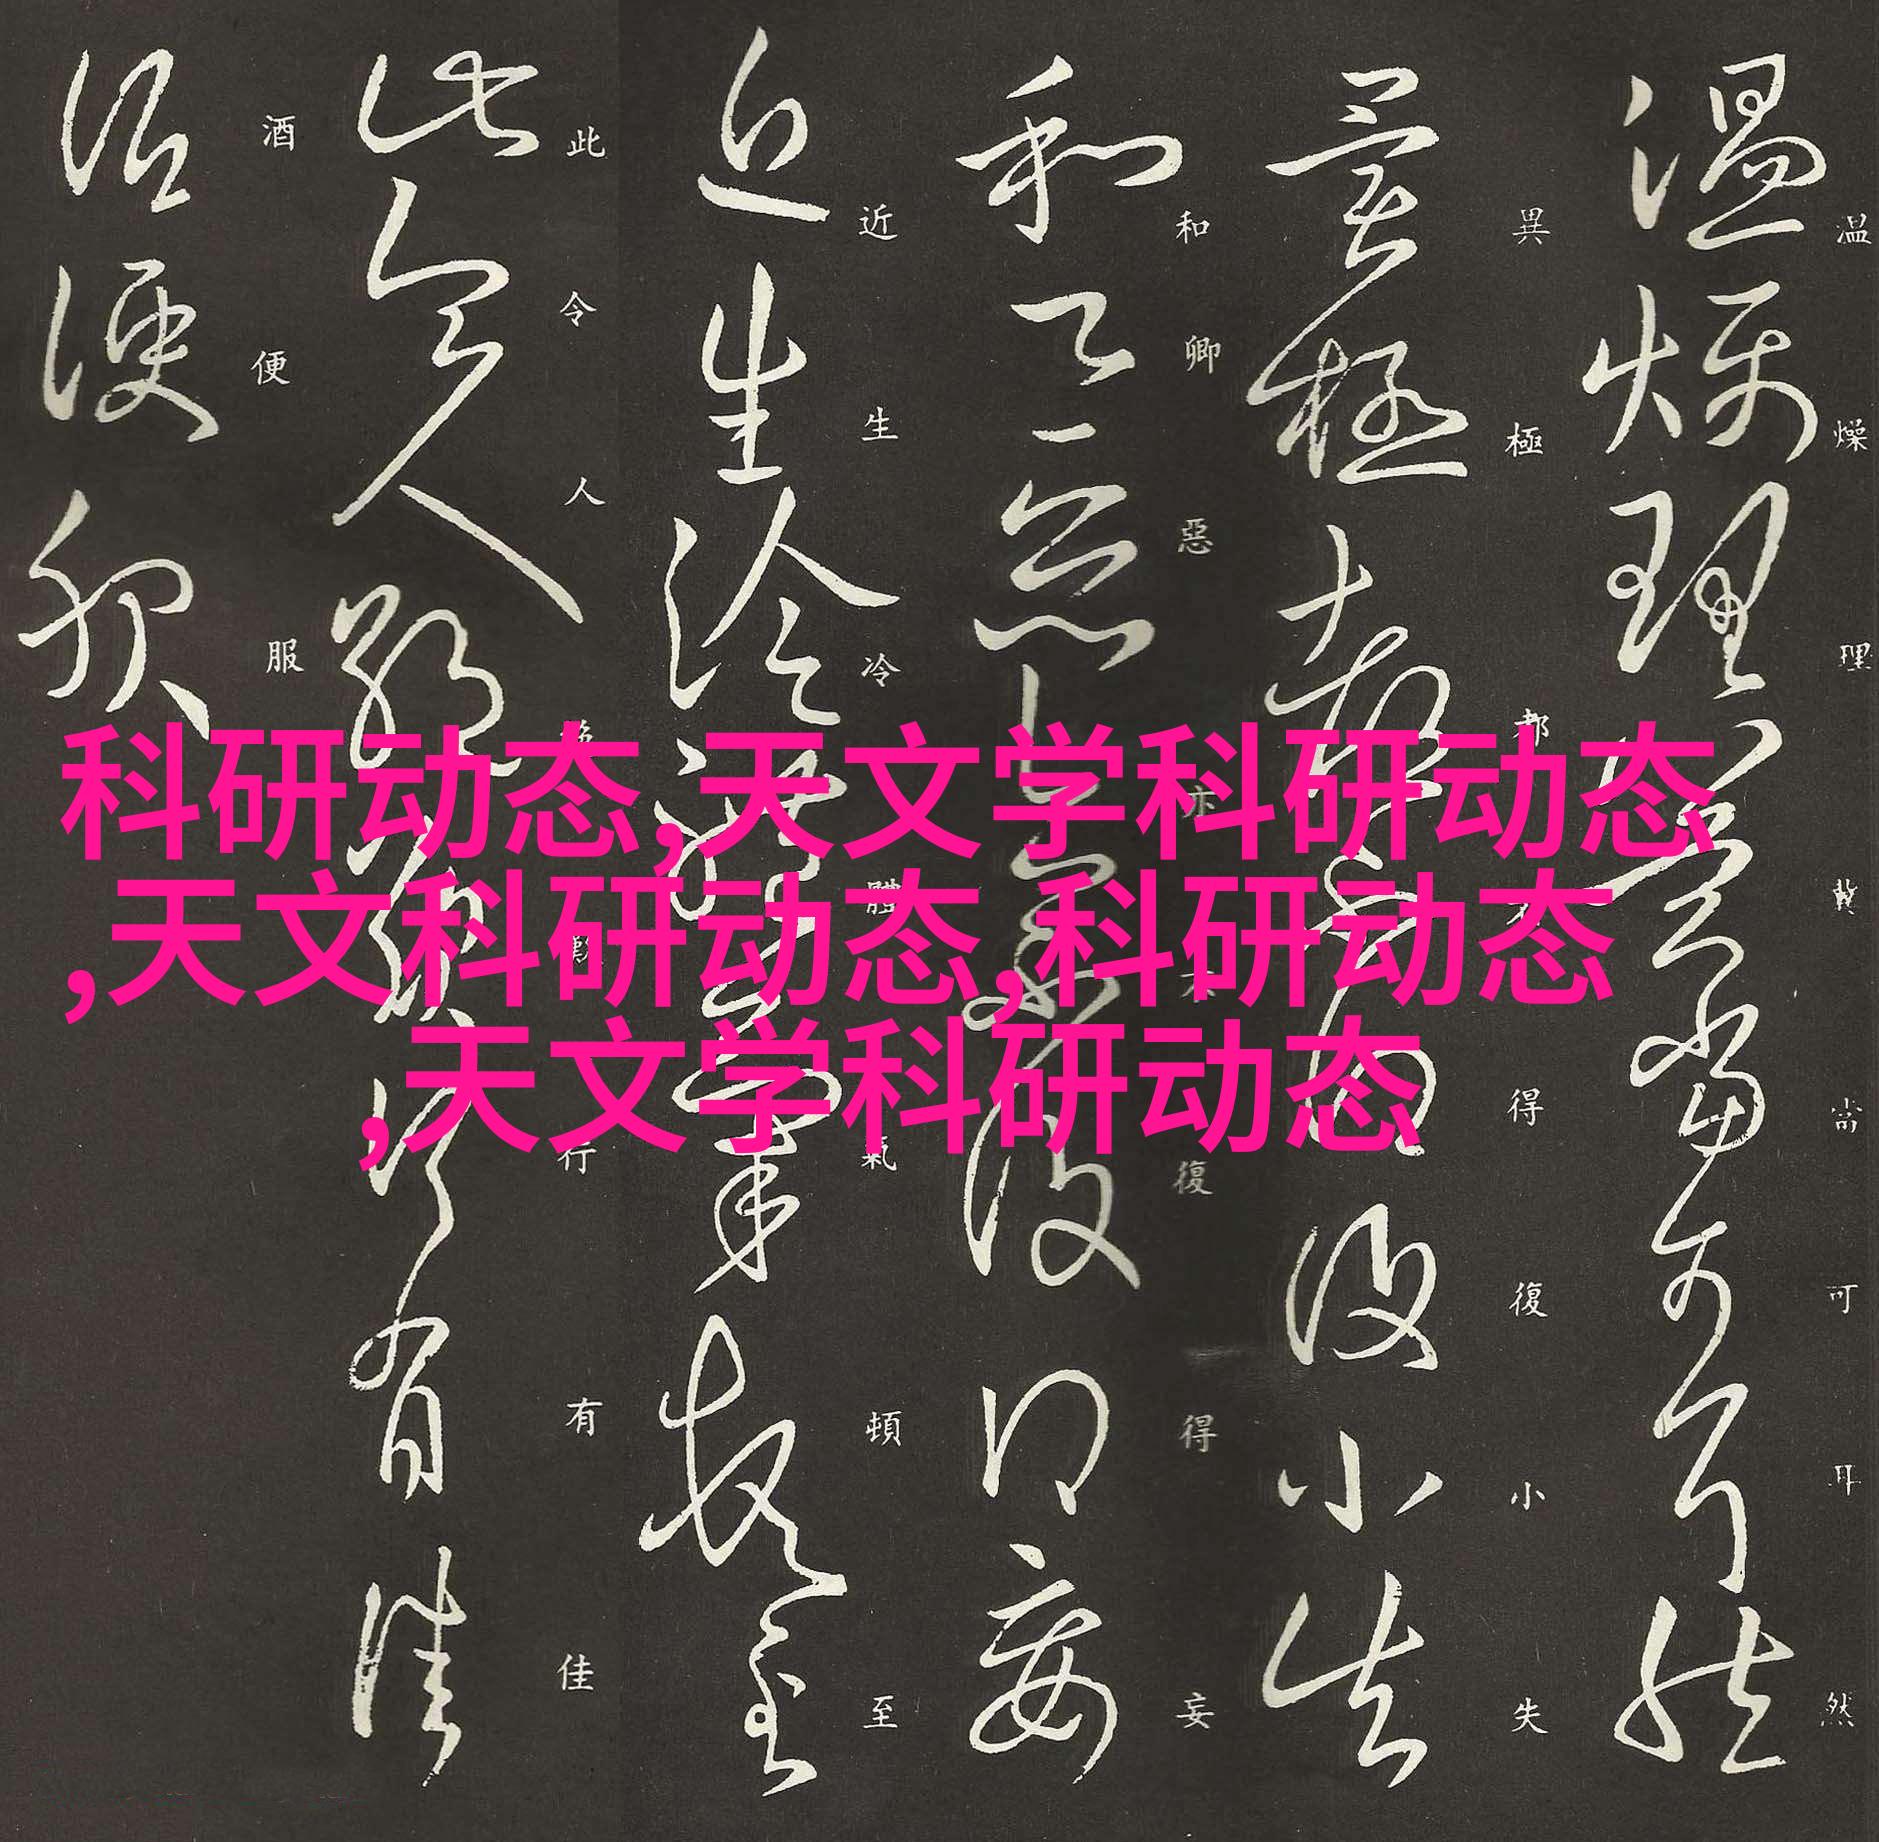 温燥理冀當可耳然
異極都不得復小失
和卿惡亦不復得妄
近生冷體氣頓至
此令人絶歎行有佳
酒便服
科研动态,天文学科研动态
,天文科研动态,科研动态
,天文学科研动态